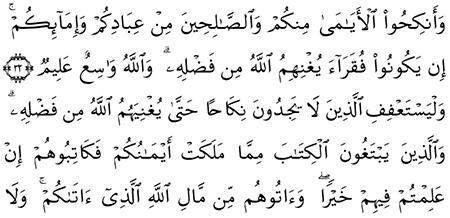 وَأَنكِحُوا۟ ٱلْأَيَـٰمَىٰ مِنكُمْ وَٱلصَّـٰلِحِينَ مِنْ عِبَادِكُمْ وَإِمَآئِكُمْ ۚ
إِن يَكُونُوا۟ فُقَرَآءَ يُغْنِهِمُ ٱللَّهُ مِن فَضْلِهِۦ ۗ وَٱللَّهُ وَٰسِعٌ عَلِيمٌ ﴿٣٢﴾
وَلْيَسْتَعْفِفِ ٱلَّذِينَ لَا يَجِدُونَ نِكَاحًا حَتَّىٰ يُغْنِيَهُمُ ٱللَّهُ مِن فَضْلِهِۦ ۗ
وَٱلَّذِينَ يَبْتَغُونَ ٱلْكِتَـٰبَ مِمَّا مَلَكَتْ أَيْمَـٰنُكُمْ فَكَاتِبُوهُمْ إِنْ
عَلِمْتُمْ فِيهِمْ خَيْرًا ۖ وَءَاتُوهُم مِّن مَّالِ ٱللَّهِ ٱلَّذِىٓ ءَاتَىٰكُمْ ۚ وَلَا